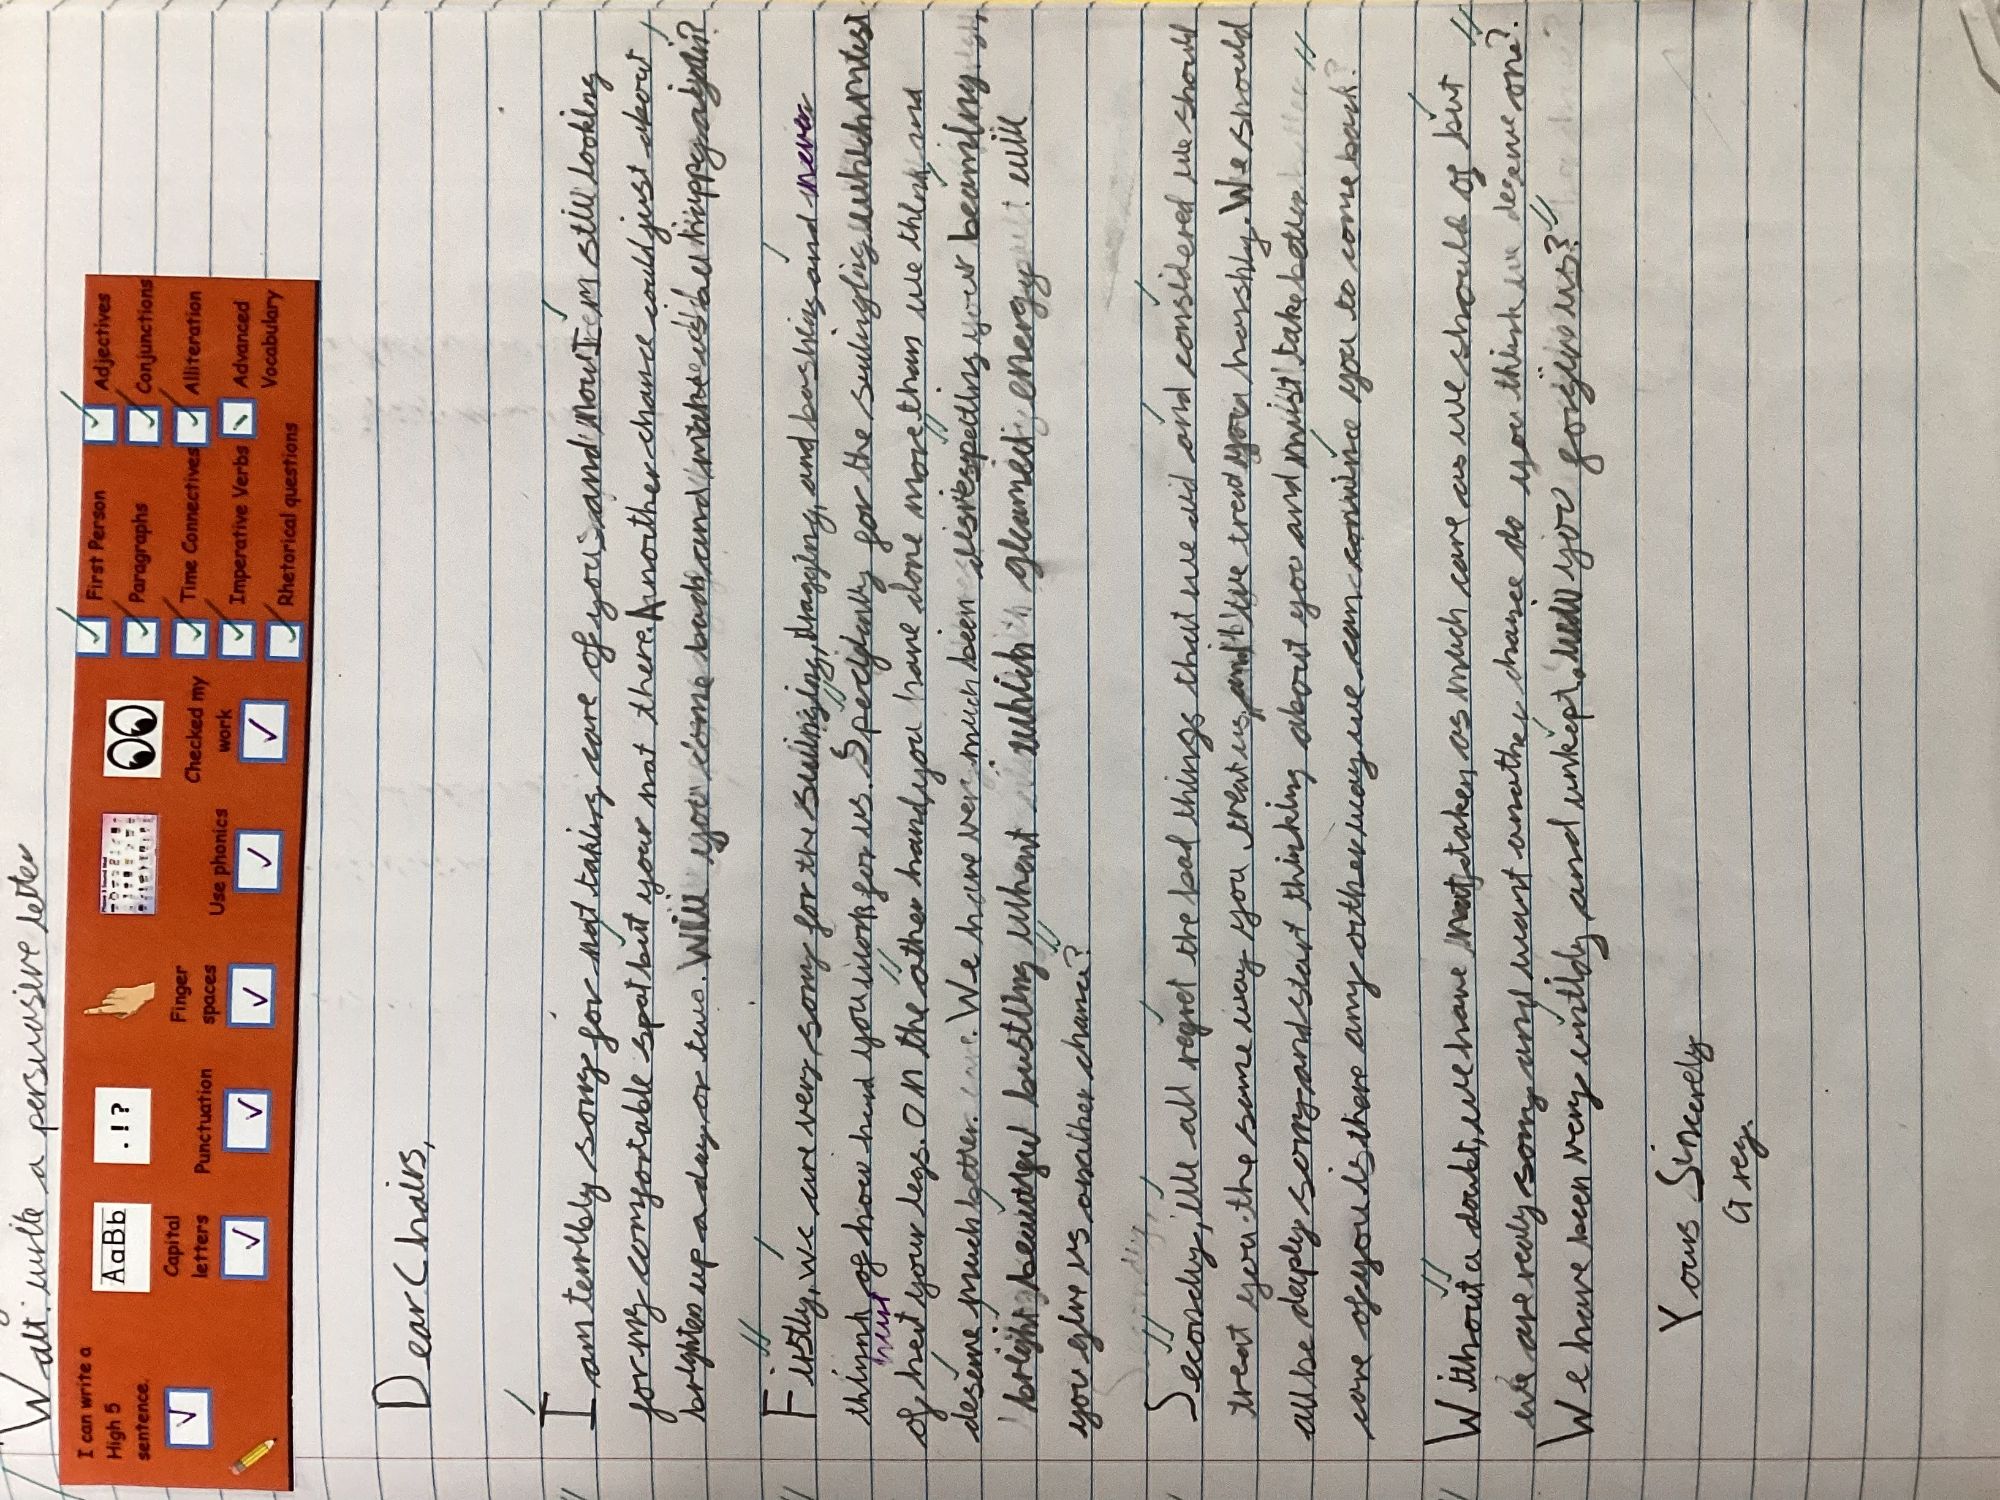 Walt: write a persuasive letter
I can write a
High 5
sentence.
AaBb
Capital
letters
. ! ?
Punctuation
Finger
spaces
Use phonics
Checked my
work
First Person
Paragraphs
Time Connectives
Imperative Verbs
Rhetorical questions
Adjectives
Conjunctions
Alliteration
Advanced
Vocabulary
Dear Chairs,
I am terribly sorry for not taking care of you and now I'm still looking
for my comfortable spat but your not there. Another chance could just about
brighten up a day or two. Will you come back and make us be happy again?
Firstly, we are very sorry for the swinging, draging, and bashing and never
think of how hard you work for us. Specially for the swinging which must
hurt
of hert your legs. On the other hand, you have done more than we think and
deserve much better. We have very much been your beaming
bright bustling which gleamed energy. will
you give us another chance?
Secondly, We all regret the bad things that we did and considered we should
treat you the same way you treat us, and we tread you harshly. We should
all be deeply sorry and start thinking about you and must take better
care of you is there any other way we can convince you to come back?
Without a doubt, we have not taken as much care as we should of but
we are realy sorry and want another chance do you think we deserve one?
We have been very untidy and unkept. will you forgive us?
Yours Sincerely
Grey.